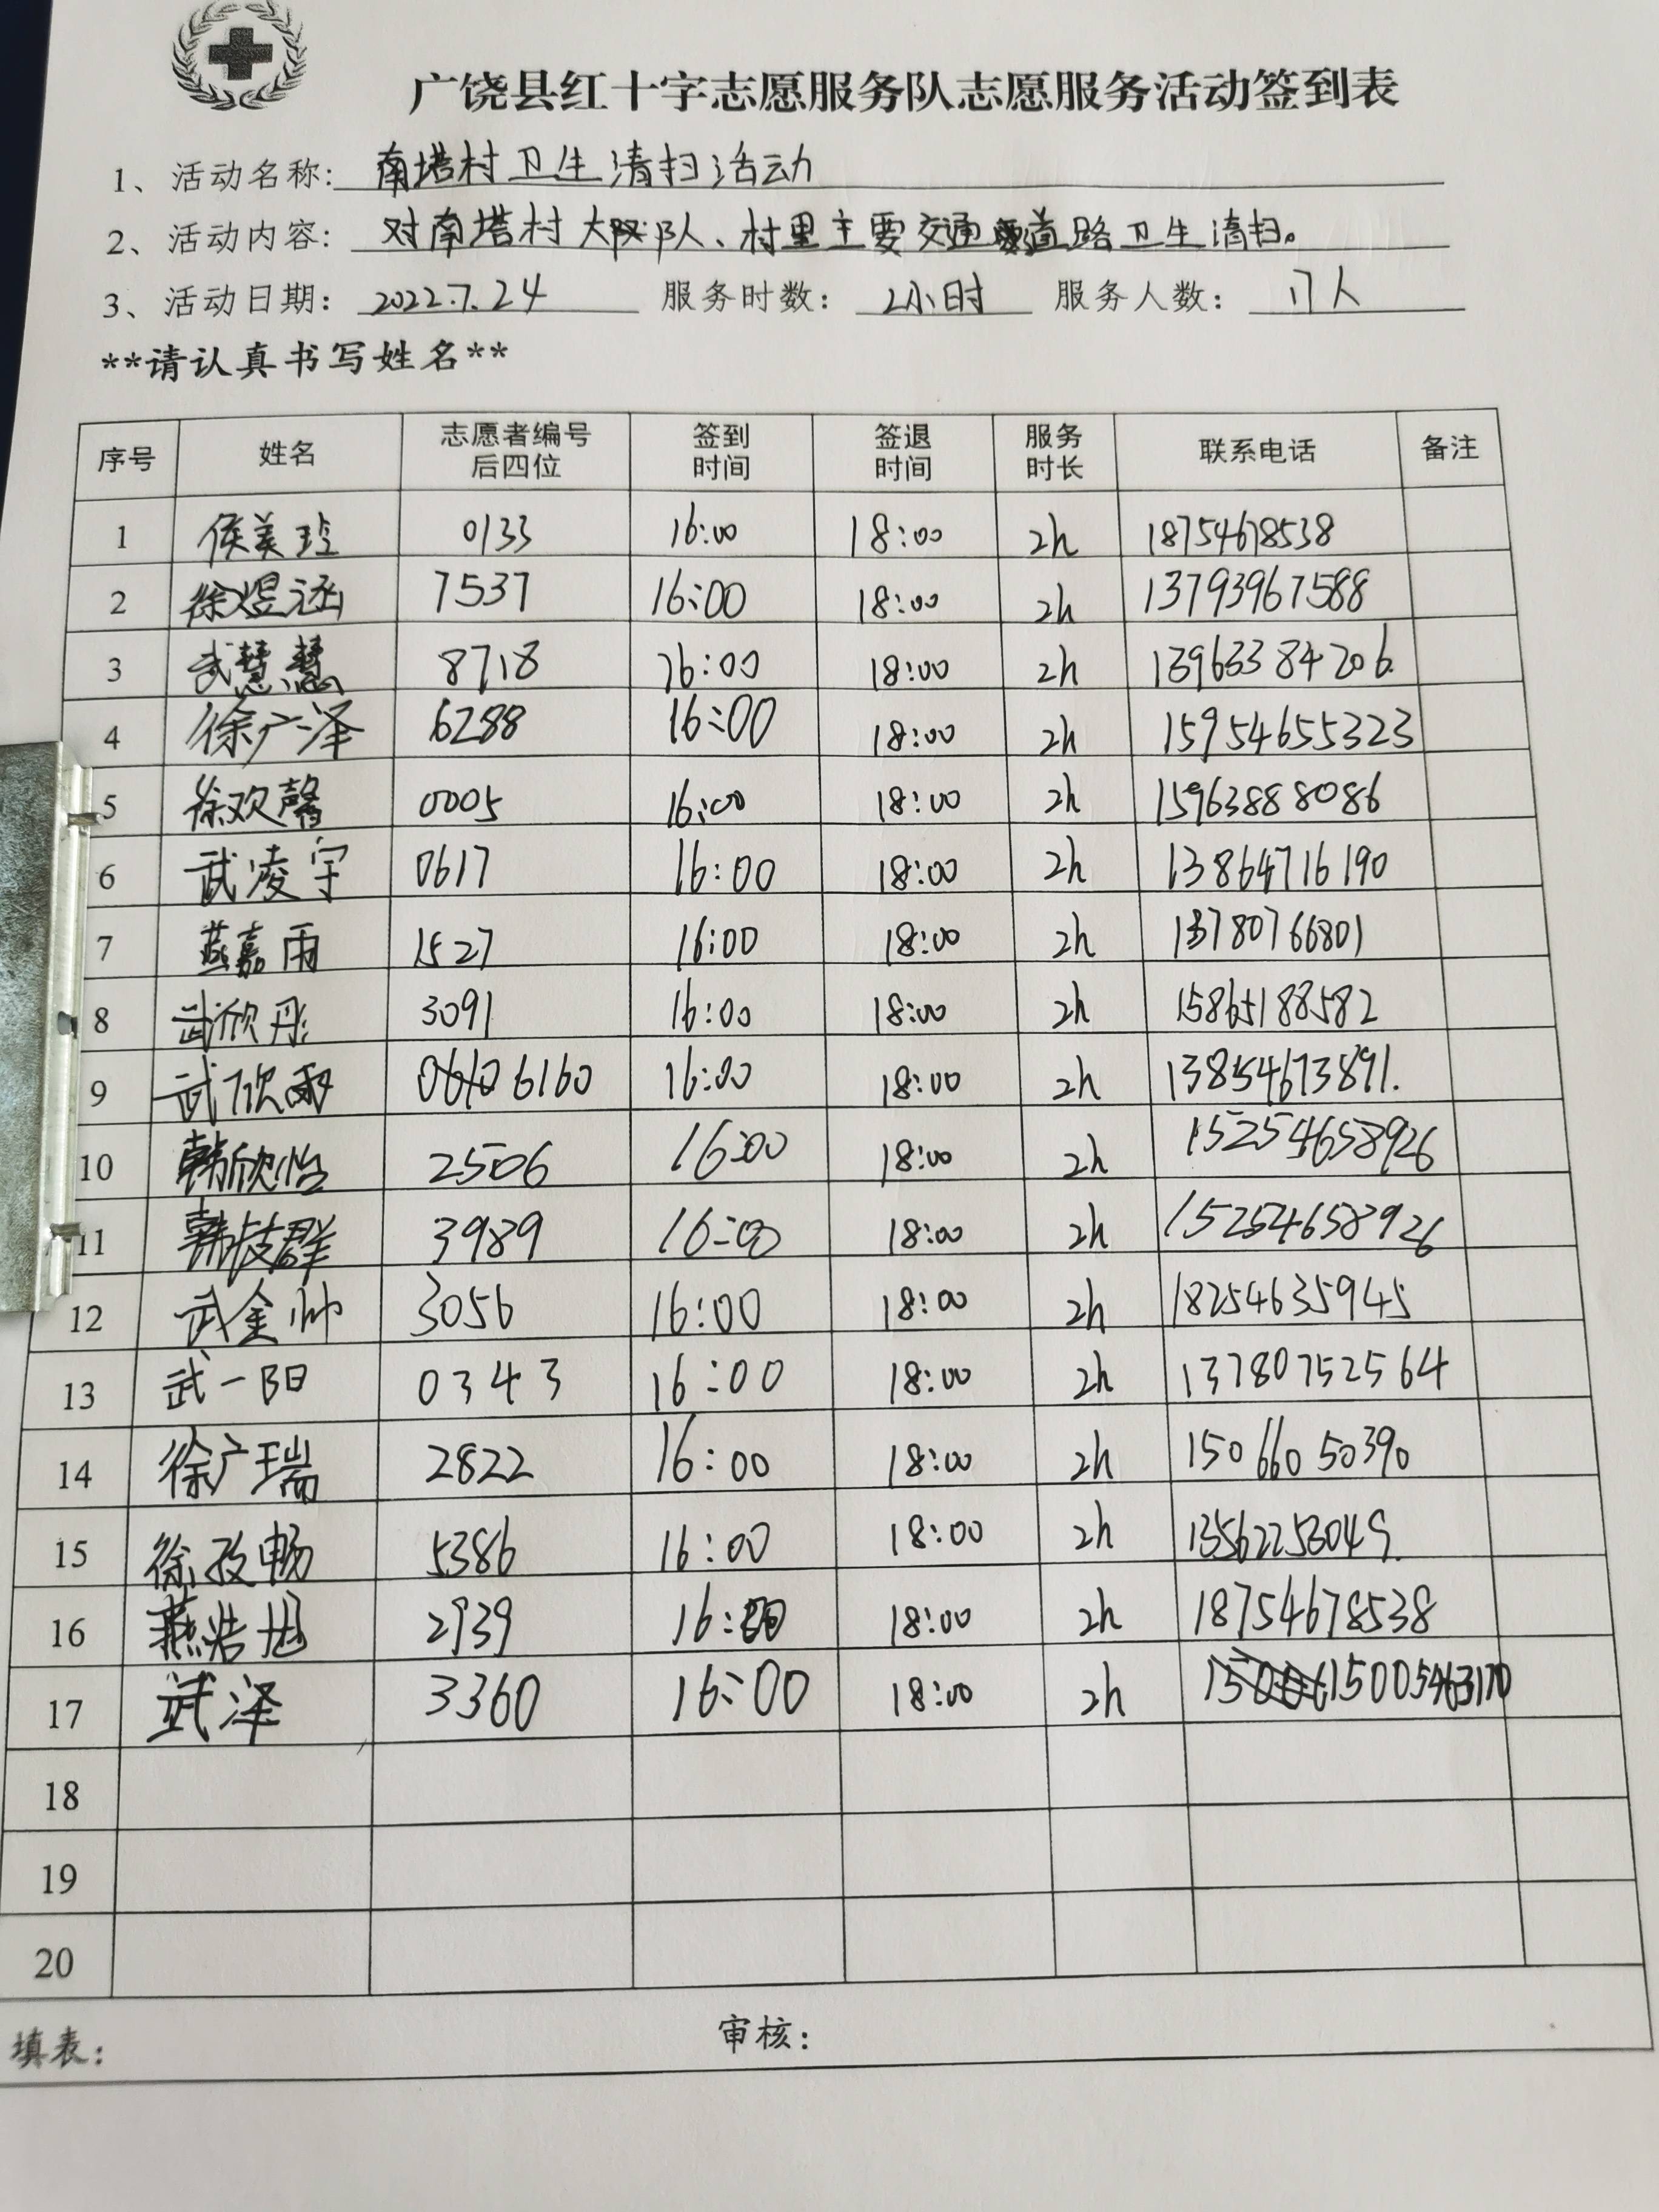 广饶县红十字志愿服务队志愿服务活动签到表
1、活动名称: 南塔村卫生清扫活动
2、活动内容: 对南塔村大队、村里主要交通道路卫生清扫。
3、活动日期: 2022.7.24 服务时数: 2小时 服务人数: 17人
**请认真书写姓名**
序号 姓名 志愿者编号后四位 签到时间 签退时间 服务时长 联系电话 备注
1 侯美玲 0133 16:00 18:00 2h 18754678538
2 徐煜涵 7537 16:00 18:00 2h 13793967588
3 武慧慧 8718 16:00 18:00 2h 13963384206
4 徐广泽 6288 16:00 18:00 2h 15954655323
5 徐欢馨 0005 16:00 18:00 2h 15963888086
6 武凌宇 0617 16:00 18:00 2h 13864716190
7 燕嘉雨 1527 16:00 18:00 2h 13780766801
8 武欣彤 3091 16:00 18:00 2h 15865188582
9 武欣雨 6160 16:00 18:00 2h 13854673891.
10 韩欣怡 2506 16:00 18:00 2h 15254658926
11 韩技群 3989 16:00 18:00 2h 15254658926
12 武金帅 3056 16:00 18:00 2h 18254635945
13 武一阳 0343 16:00 18:00 2h 13780752564
14 徐广瑞 2822 16:00 18:00 2h 15066050390
15 徐孜畅 5386 16:00 18:00 2h
16 燕浩旭 2939 16:00 18:00 2h 18754678538
17 武泽 3360 16:00 18:00 2h 15005463170
18
19
20
填表: 审核: